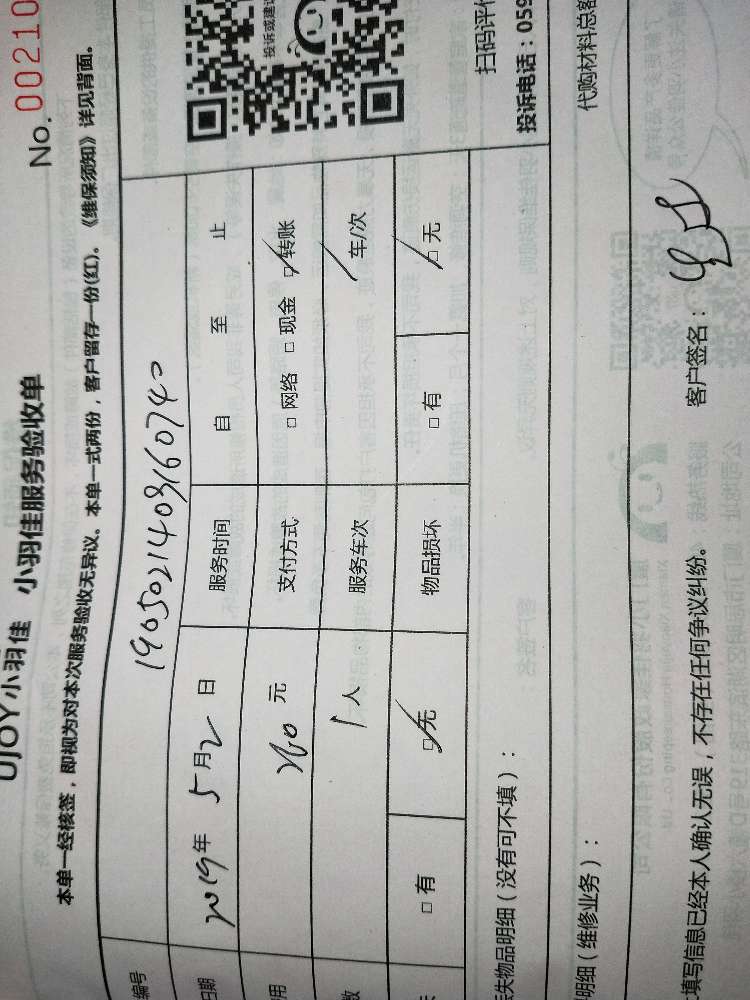 UJOY小羽佳 小羽佳服务验收单
No. 00210
本单一经核签，即视为对本次服务验收无异议。本单一式两份，客户留存一份(红)。《维保须知》详见背面。
编号 1905021403160740
日期 2019年 5月2日 服务时间 自 至 止
用 元 支付方式 □网络 □现金 □转账
数 1人 服务车次 / 车/次
□有 □无 物品损坏 □有 □无
投诉或建议
丢失物品明细（没有可不填）：
扫码评价
投诉电话：059
明细（维修业务）：
代购材料总额
填写信息已经本人确认无误，不存在任何争议纠纷。 客户签名：